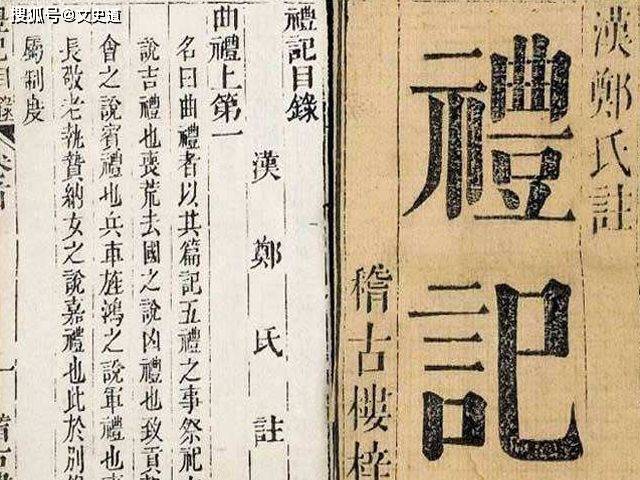 搜狐号@文史道
漢鄭氏註
禮記
稽古樓梓
禮記目錄
曲禮上第一
漢鄭氏註
名曰曲禮者以其篇記五禮之事祭祀
說吉禮也喪荒去國之說凶禮也致貢
會之說賓禮也兵車旌鴻之說軍禮也事
長敬老執贄納女之說嘉禮也此於別
屬制度